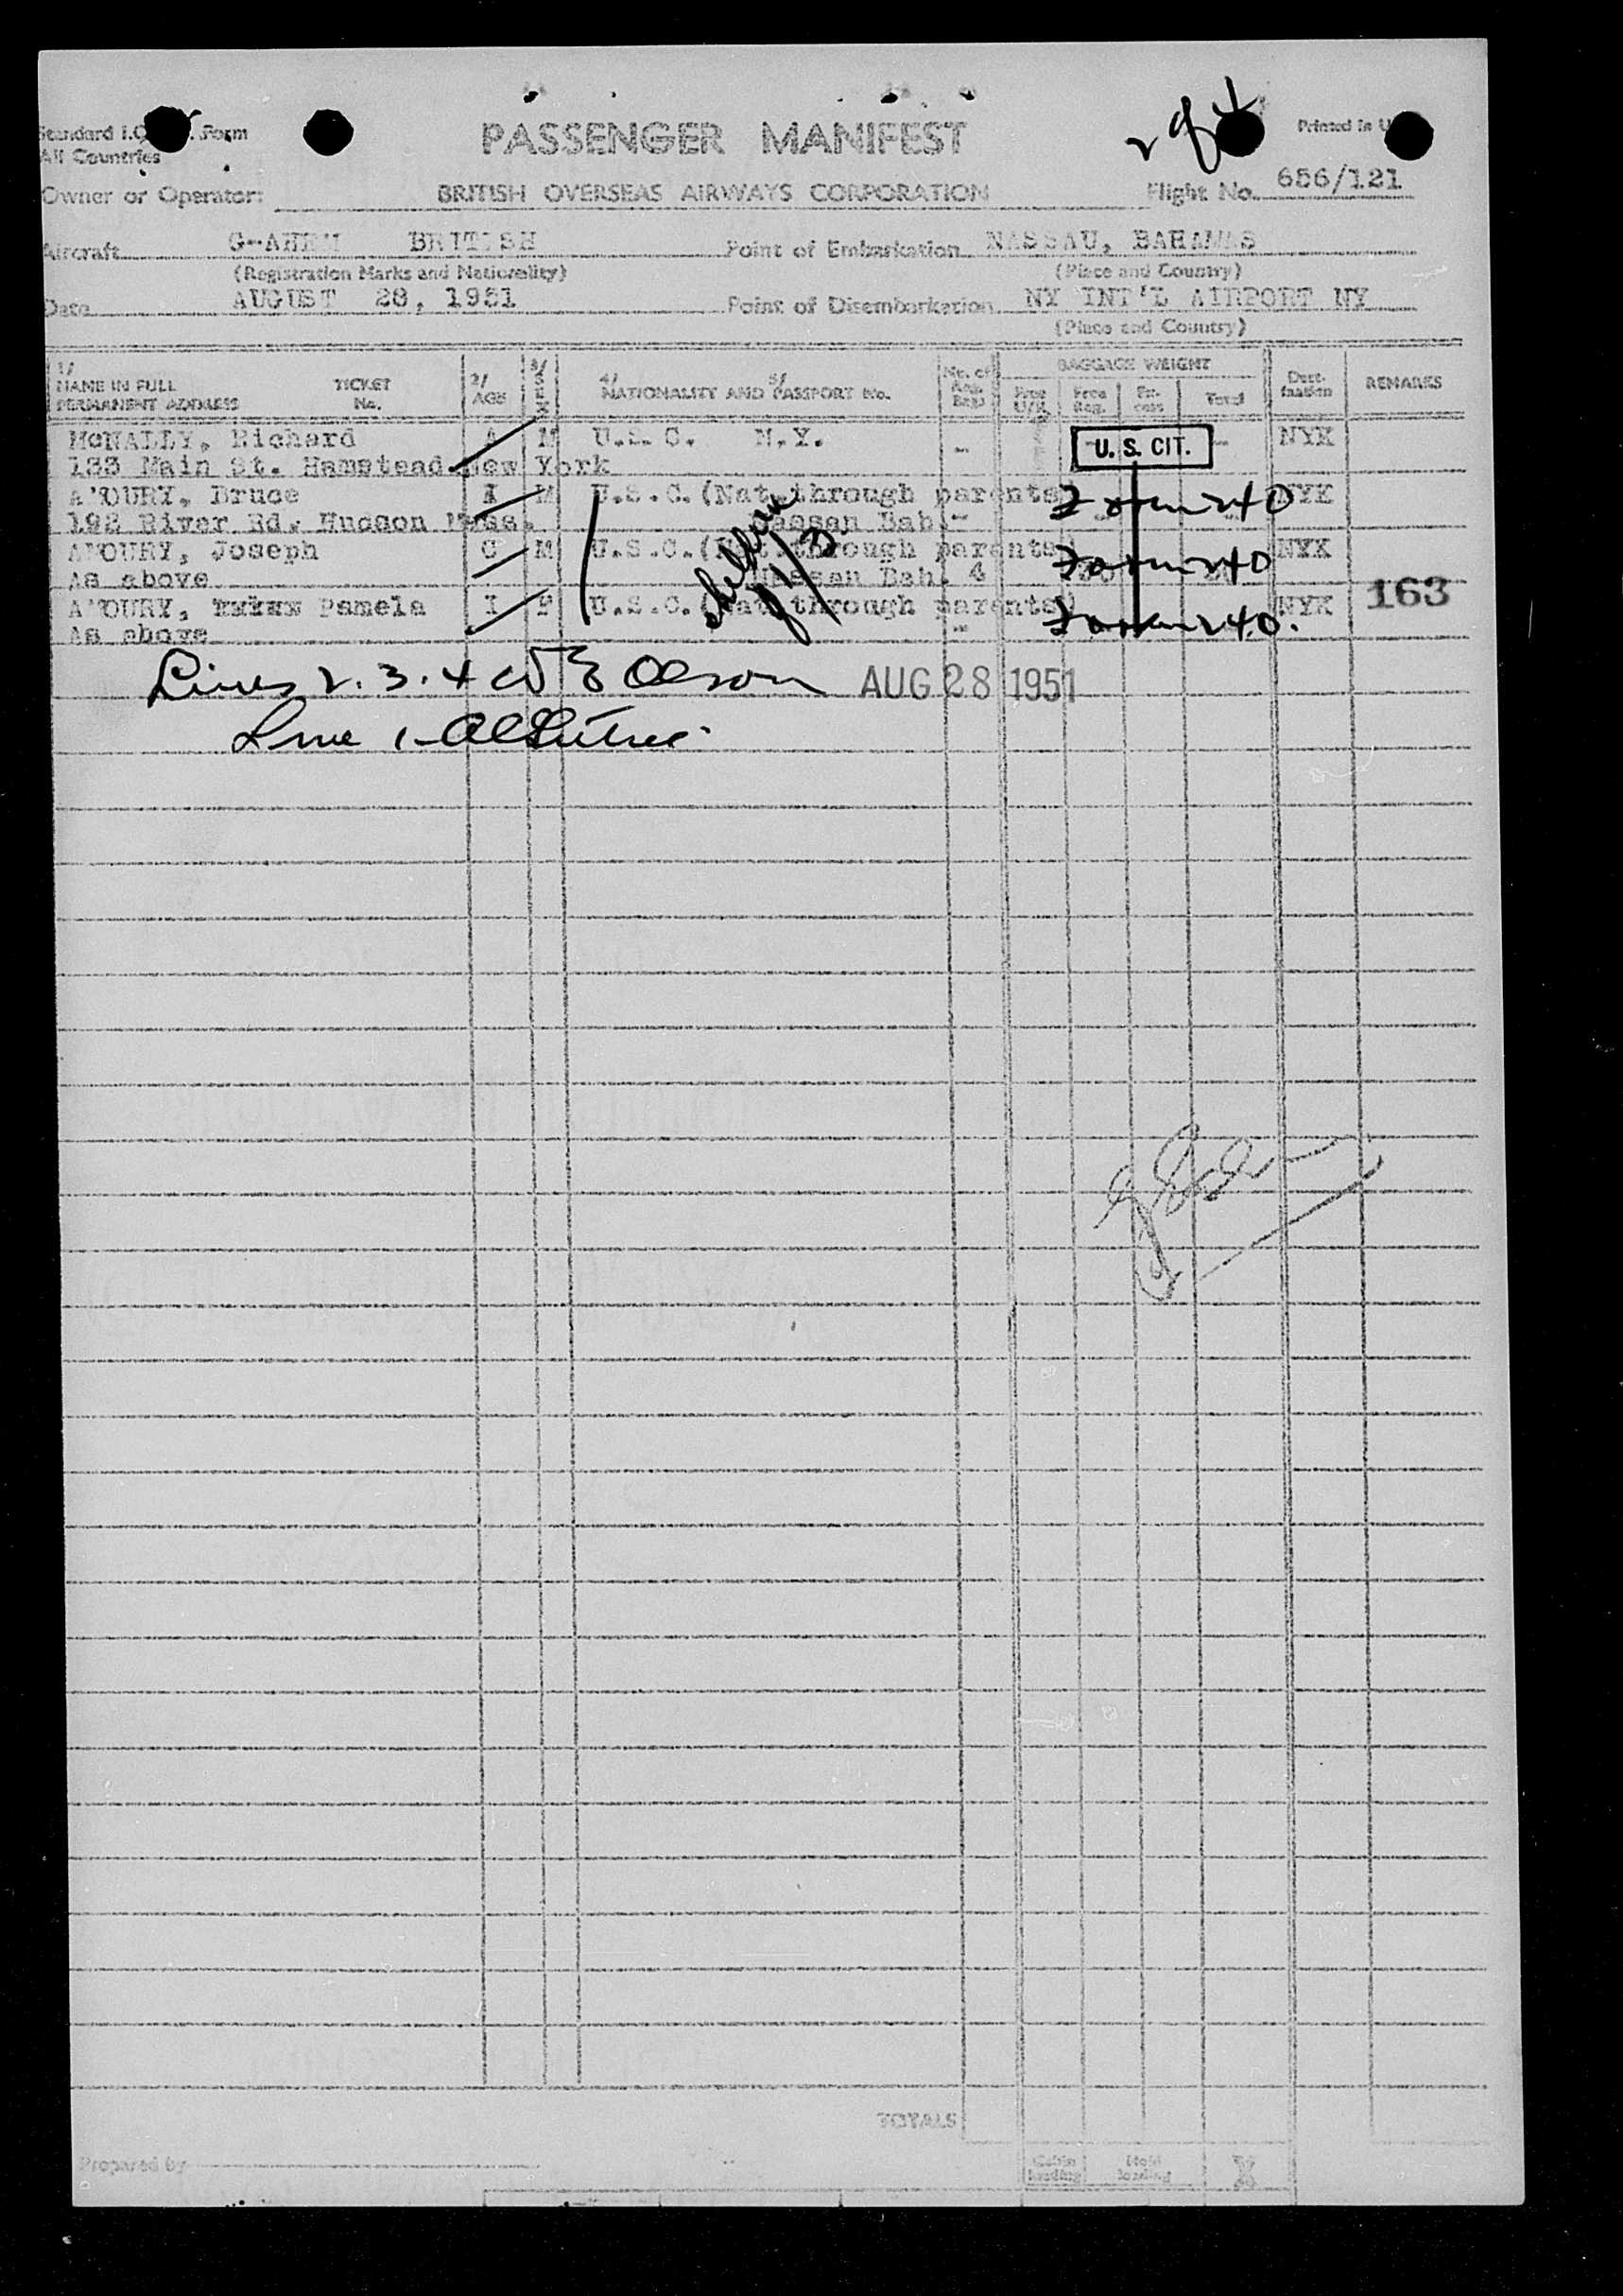 Form
All Countries
PASSENGER MANIFEST
2 of 4
Printed in
Owner or Operator: BRITISH OVERSEAS AIRWAYS CORPORATION Flight No. 656/121
Aircraft BRITISH Point of Embarkation NASSAU, BAHAMAS
(Registration Marks and Nationality) (Place and Country)
Date AUGUST 28, 1951 Point of Disembarkation NY INT'L AIRPORT NY
(Place and Country)
1/ NAME IN FULL PERMANENT ADDRESS TICKET No. 2/ AGE 3/ SEX 4/ NATIONALITY AND 5/ PASSPORT No. No. of Reg. Bags BAGGAGE WEIGHT Free Reg. Ex-cess Total Dest-ination REMARKS
McNALLY, Richard A M U.S.C. N.Y. - U. S. CIT. - NYK
133 Main St. Hamstead New York
Bruce I M U.S.C. (Nat. through parents NYK
192 River Rd. Hudson Mass. Nassau Bah. -
Joseph C M U.S.C. (Nat. through parents NYK
As above Nassau Bah. 4
Pamela I F U.S.C. (Nat. through parents) NYK 163
As above -
Form 240
Form 240
Form 240.
Lines 2.3.4 W E Olson AUG 28 1951
Line 1-
TOTALS
Prepared by
Cabin loading Hold loading